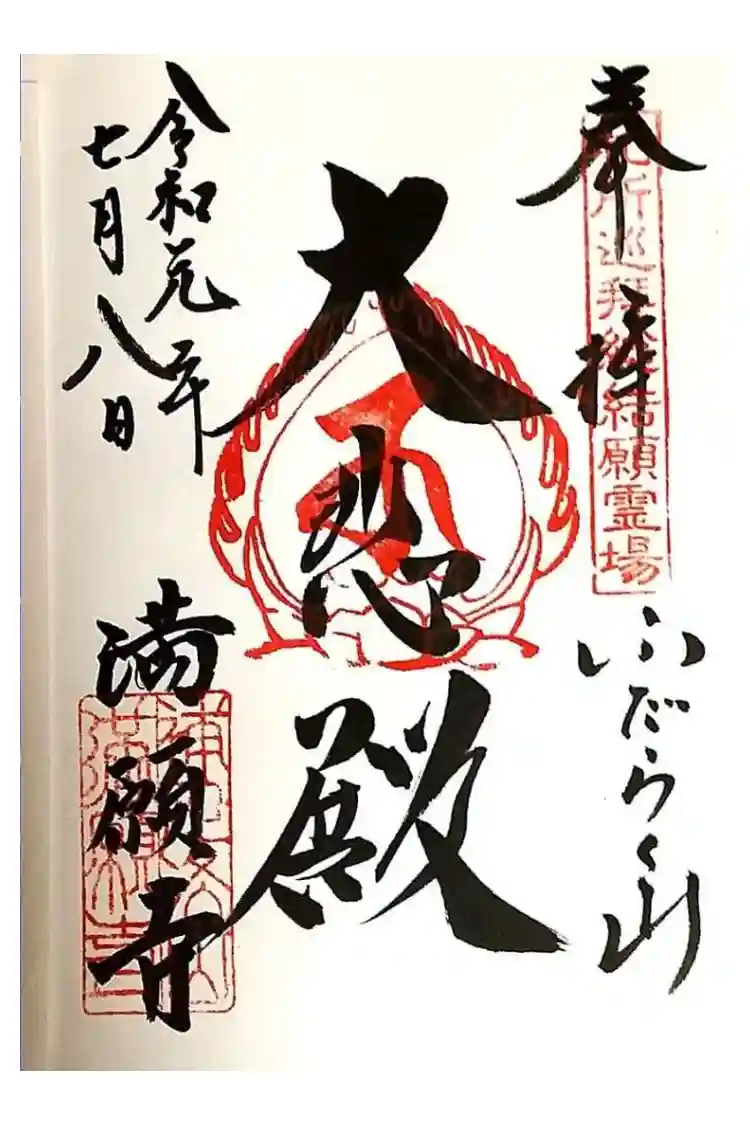 奉拝
札所巡拝総結願霊場
ふだらく山
大悲殿
令和元年
七月八日
満願寺